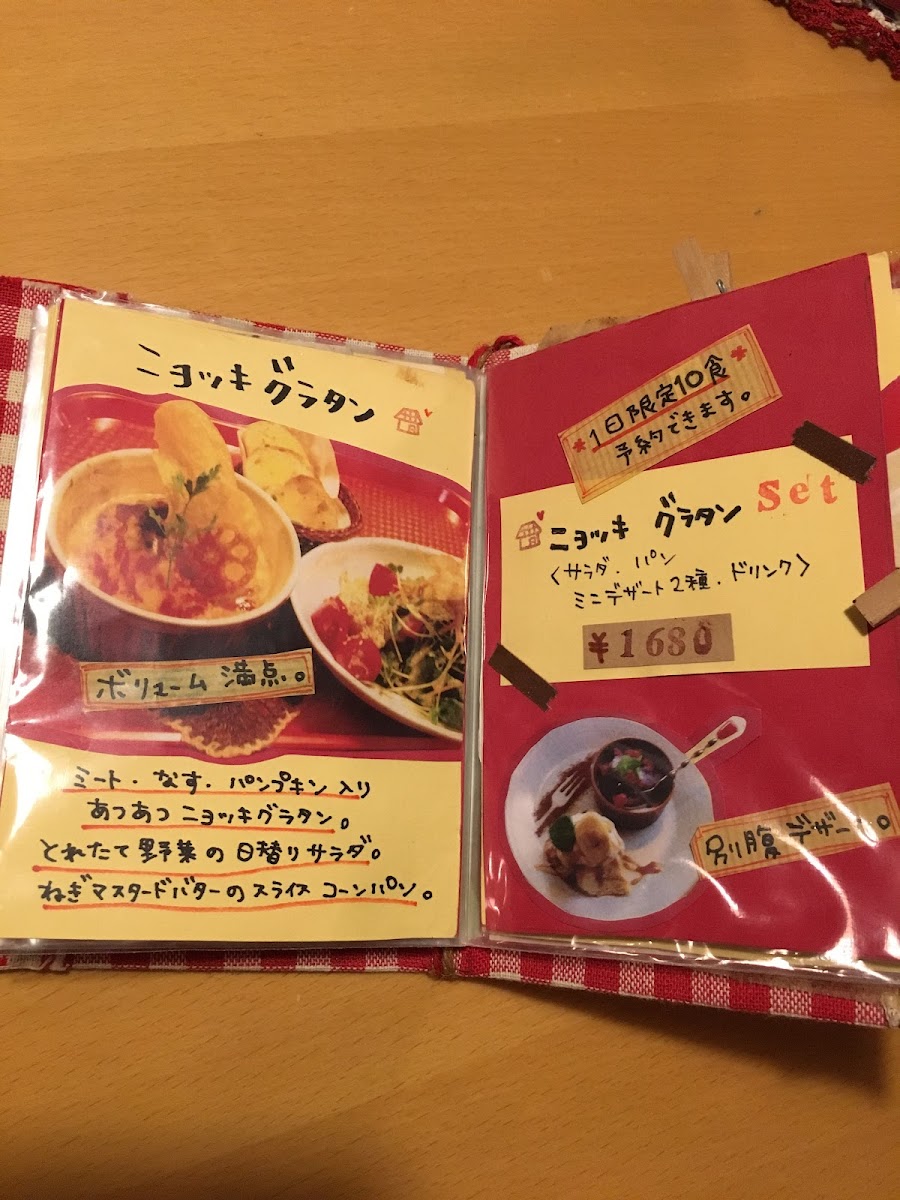 ニョッキグラタン
ボリューム満点。
ミート・なす・パンプキン入り
あつあつニョッキグラタン。
とれたて野菜の日替りサラダ。
ねぎマスタードバターのスライスコーンパン。
1日限定10食
予約できます。
ニョッキ グラタン Set
〈サラダ・パン
ミニデザート2種・ドリンク〉
¥1680
別腹デザート。